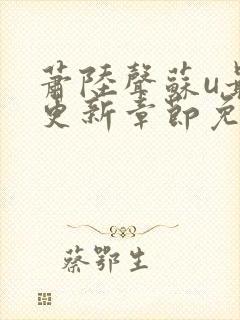 蕭陸聲蘇u
更新章節免
蔡鄂生